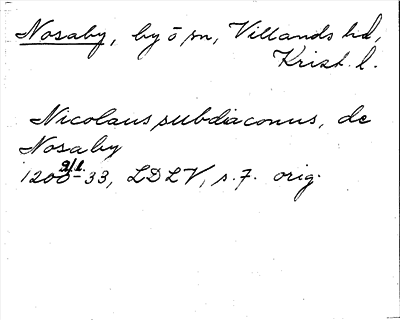 Nosaby, by ō sn, Villands hd,
Krist. l.
Nicolaus subdiaconus, de
Nosaby
1200-33, LDLV, s. 7. orig.